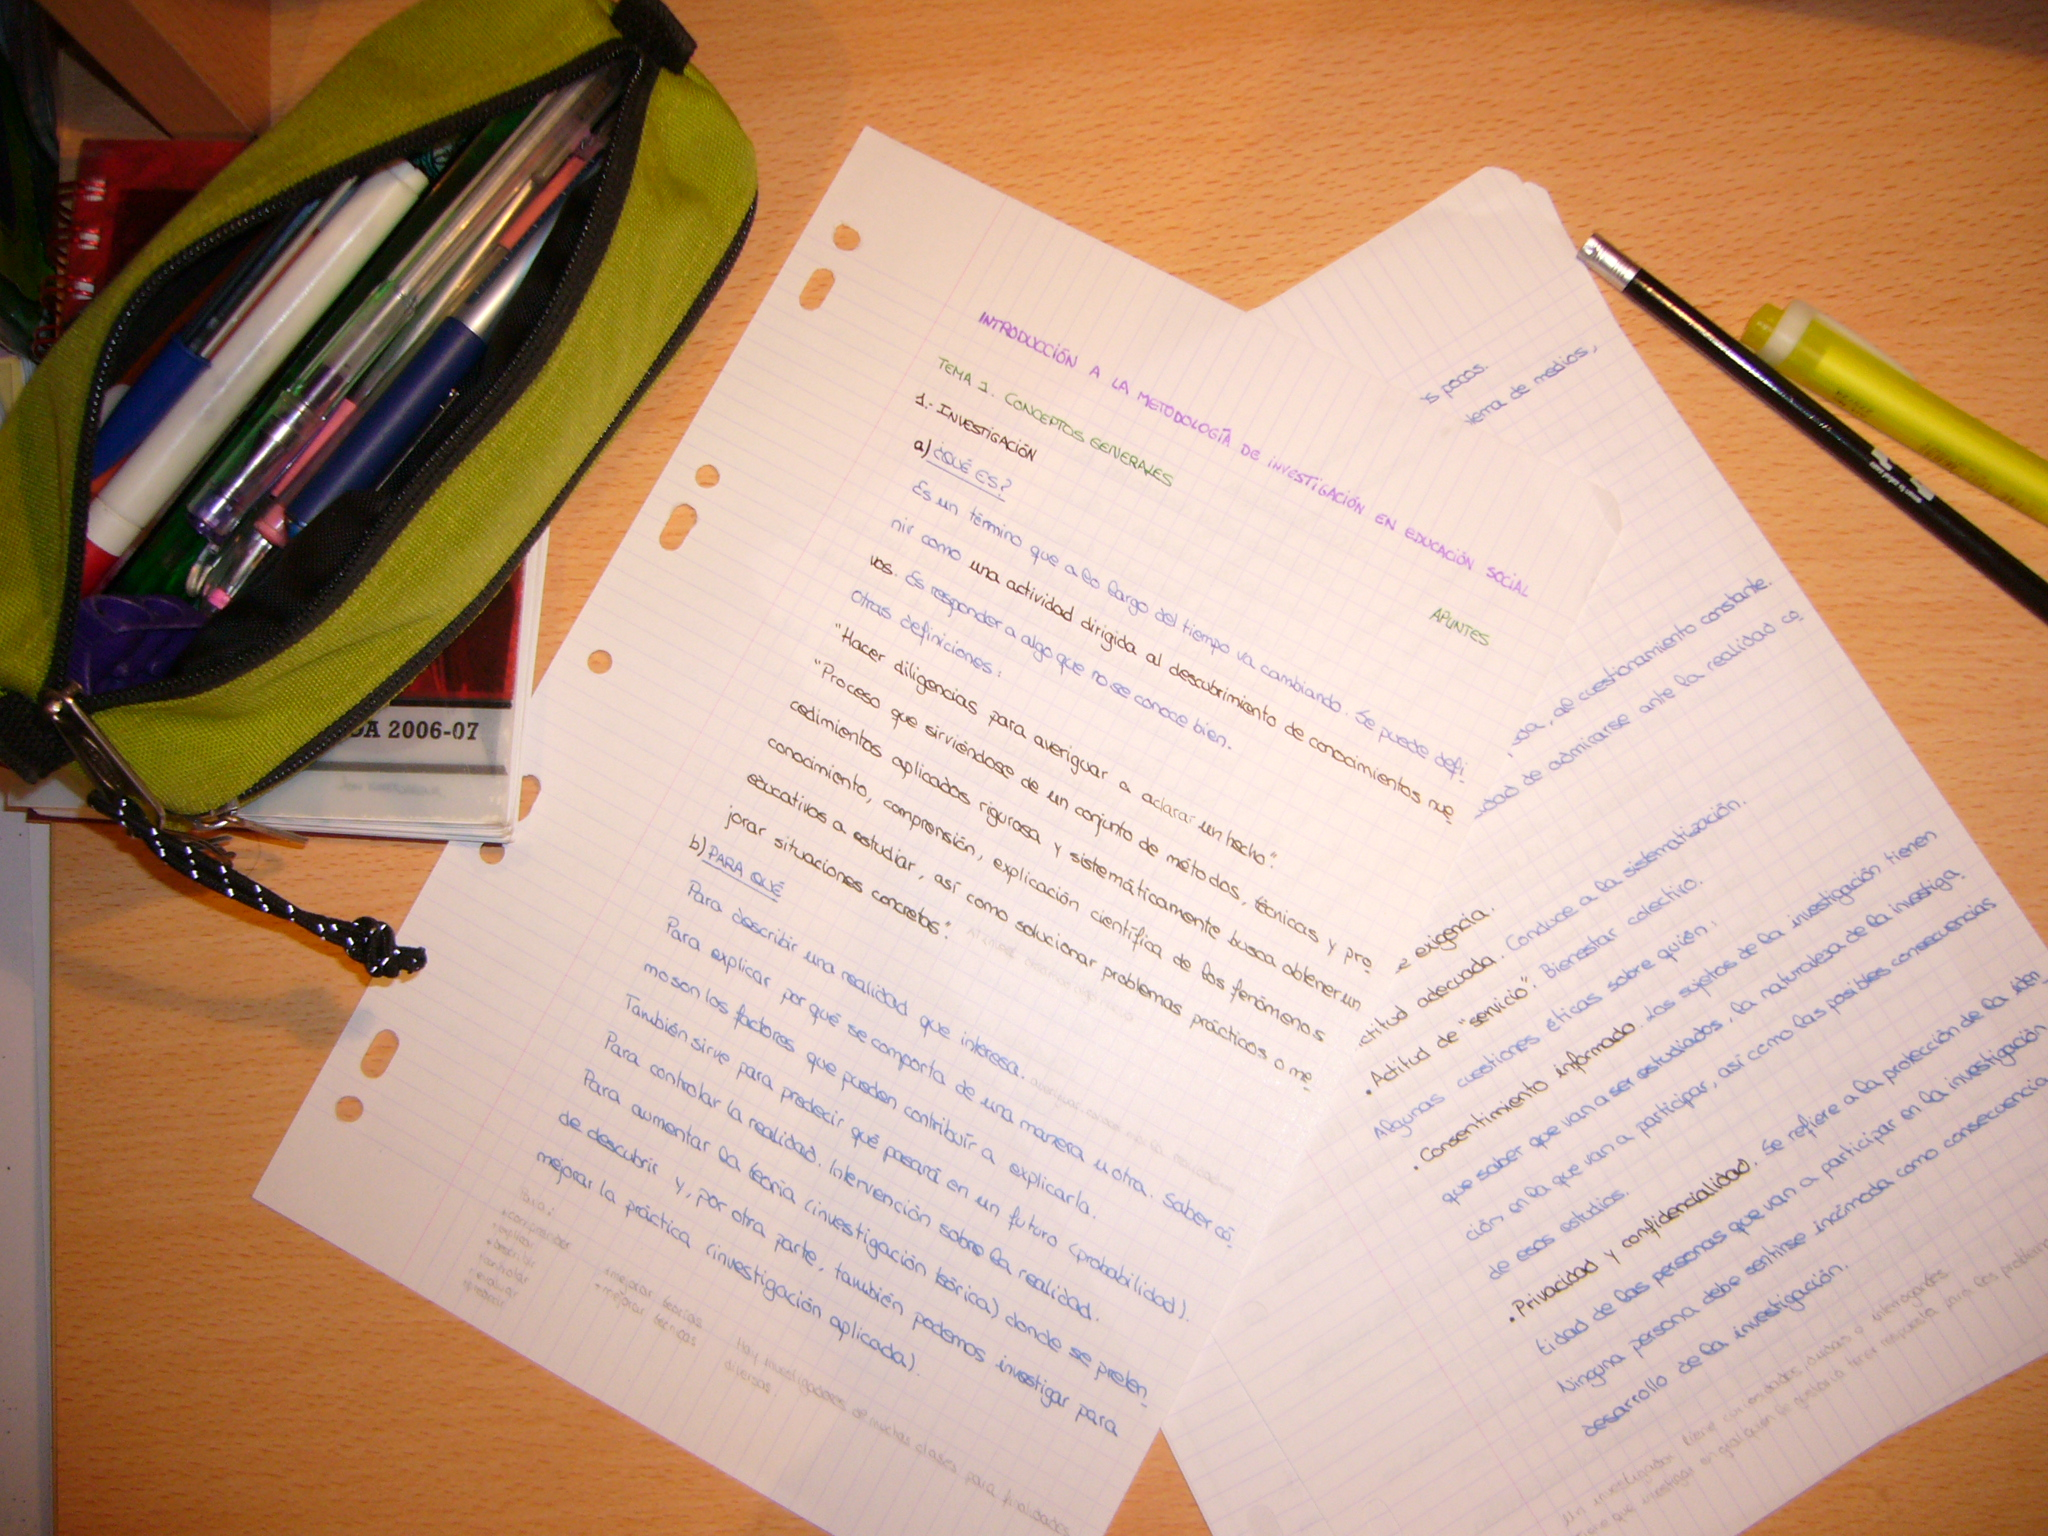 INTRODUCCIÓN A LA METODOLOGÍA DE INVESTIGACIÓN EN EDUCACIÓN SOCIAL
APUNTES
TEMA 1. CONCEPTOS GENERALES
1.- INVESTIGACIÓN
a) ¿QUÉ ES?
Es un término que a lo largo del tiempo va cambiando. Se puede defi-
nir como una actividad dirigida al descubrimiento de conocimientos nue-
vos. Es responder a algo que no se conoce bien.
Otras definiciones:
"Hacer diligencias para averiguar a aclarar un hecho".
"Proceso que sirviéndose de un conjunto de métodos, técnicas y pro-
cedimientos aplicados rigurosa y sistemáticamente busca obtener un
conocimiento, comprensión, explicación científica de los fenómenos
educativos a estudiar, así como solucionar problemas prácticos o me-
jorar situaciones concretas".
b) PARA QUÉ
Para describir una realidad que interesa.
Para explicar por qué se comporta de una manera u otra. Saber có-
mo son los factores que pueden contribuir a explicarla.
También sirve para predecir qué pasará en un futuro (probabilidad).
Para controlar la realidad. Intervención sobre la realidad.
Para aumentar la teoría (investigación teórica) donde se preten-
de descubrir y, por otra parte, también podemos investigar para
mejorar la práctica (investigación aplicada).
mejorar teorías
Hay investigaciones de muchas clases para finalidades
diversas.
is pocos.
tema de medios,
al cuestionamiento constante.
dad de admirarse ante la realidad co
e exigencia.
ctitud adecuada. Conduce a la sistematización.
• Actitud de "servicio". Bienestar colectivo.
Algunas cuestiones éticas sobre quién:
• Consentimiento informado. Los sujetos de la investigación tienen
que saber que van a ser estudiados, la naturaleza de la investiga-
ción en la que van a participar, así como las posibles consecuencias
de esos estudios.
• Privacidad y confidencialidad. Se refiere a la protección de la iden
tidad de las personas que van a participar en la investigación
Ninguna persona debe sentirse incómoda como consecuencia
desarrollo de la investigación.
Un investigador tiene curiosidades, dudas o interrogantes
CA 2006-07